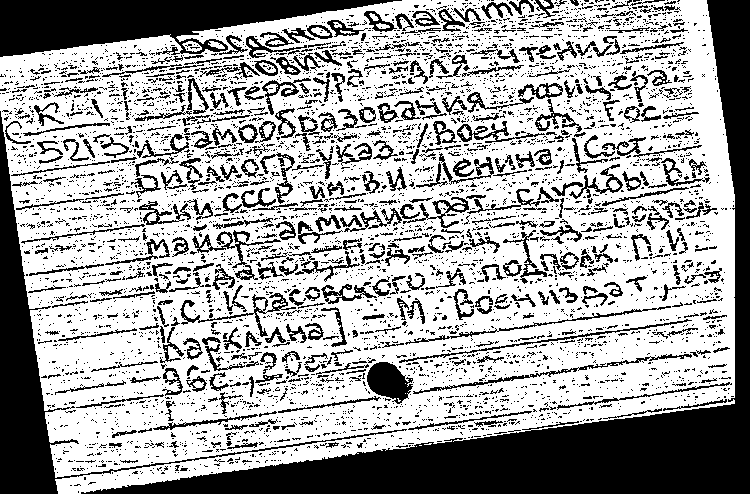 Богданов, Владимир
лович.
Литература для чтения
К-1
5213
и самообразования офицера.
Библиогр. указ. / Воен. отд. Гос.
б-ки СССР им. В.И. Ленина; [Сост.
майор административ. службы В.М.
Богданов; Под общ. ред. подпол
Г.С. Красовского и подполк. П.И.
Карклина]. - М.: Воениздат,
96с., 20см.